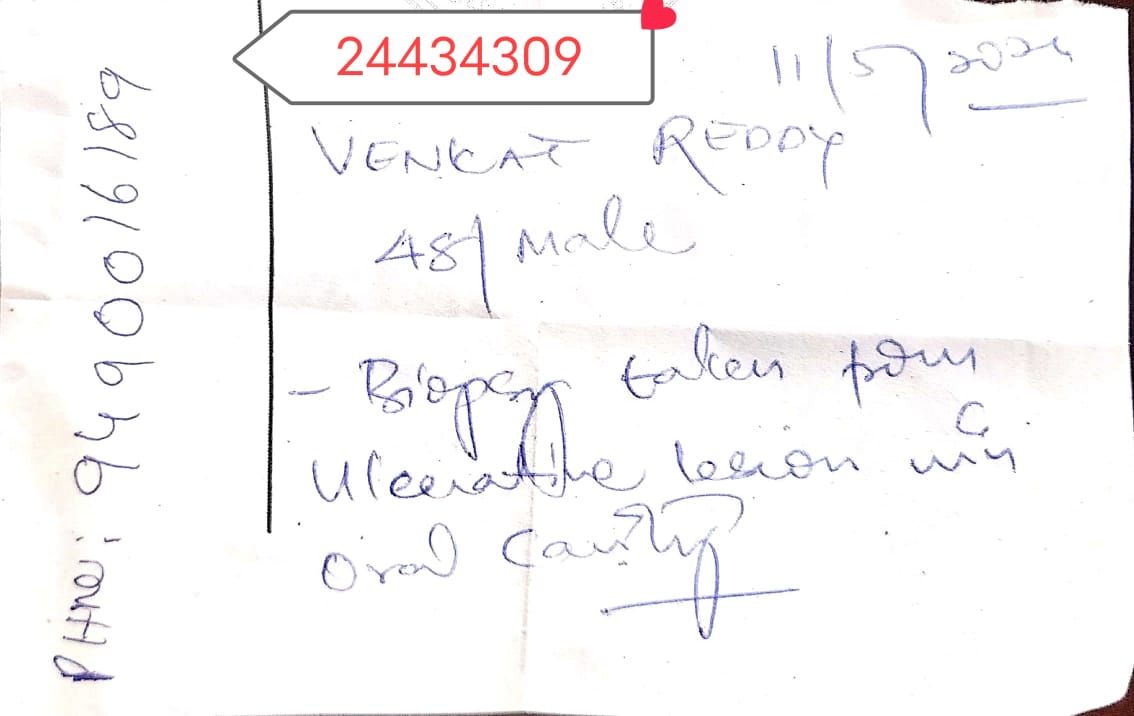 24434309
11/5/2024
VENKAT REDDY
48/Male
- Biopsy taken from
Ulcerative lesion in
Oral Cavity
PHno: 9490016189